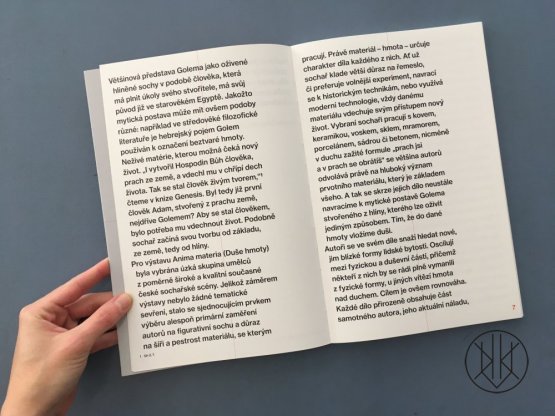 Většinová představa Golema jako oživené
hliněné sochy v podobě člověka, která
má plnit úkoly svého stvořitele, má svůj
původ již ve starověkém Egyptě. Jakožto
mytická postava může mít ovšem podoby
různé: například ve středověké filozofické
literatuře je hebrejský pojem Golem
používán k označení beztvaré hmoty.
Neživé matérie, kterou možná čeká nový
život. „I vytvořil Hospodin Bůh člověka,
prach ze země, a vdechl mu v chřípí dech
života. Tak se stal člověk živým tvorem,“¹
čteme v knize Genesis. Byl tedy již první
člověk Adam, stvořený z prachu země,
nejdříve Golemem? Aby se stal člověkem,
bylo potřeba mu vdechnout život. Podobně
sochař začíná svou tvorbu od základu,
ze země, tedy od hlíny.
Pro výstavu Anima materia (Duše hmoty)
byla vybrána úzká skupina umělců
z poměrně široké a kvalitní současné
české sochařské scény. Jelikož záměrem
výstavy nebylo žádné tematické
sevření, stalo se sjednocujícím prvkem
výběru alespoň primární zaměření
autorů na figurativní sochu a důraz
na šíři a pestrost materiálu, se kterým
1 Gn 2, 7.
pracují. Právě materiál – hmota – určuje
charakter díla každého z nich. Ať už
sochař klade větší důraz na řemeslo,
či preferuje volnější experiment, navrací
se k historickým technikám, nebo využívá
moderní technologie, vždy danému
materiálu vdechuje svým přístupem nový
život. Vybraní sochaři pracují s kovem,
keramikou, voskem, sklem, mramorem,
porcelánem, sádrou či betonem, nicméně
v duchu zažité formule „prach jsi
a v prach se obrátíš“ se většina autorů
odvolává právě na hluboký význam
prvotního materiálu, který je základem
všeho. A tak se skrze jejich dílo neustále
navracíme k mytické postavě Golema
stvořeného z hlíny, kterého lze oživit
jediným způsobem. Tím, že do dané
hmoty vložíme duši.
Autoři se ve svém díle snaží hledat nové,
jim blízké formy lidské bytosti. Oscilují
mezi fyzickou a duševní částí, přičemž
někteří z nich by se rádi plně vymanili
z fyzické formy, u jiných vítězí hmota
nad duchem. Cílem je ovšem rovnováha.
Každé dílo přirozeně obsahuje část
samotného autora, jeho aktuální náladu,
7